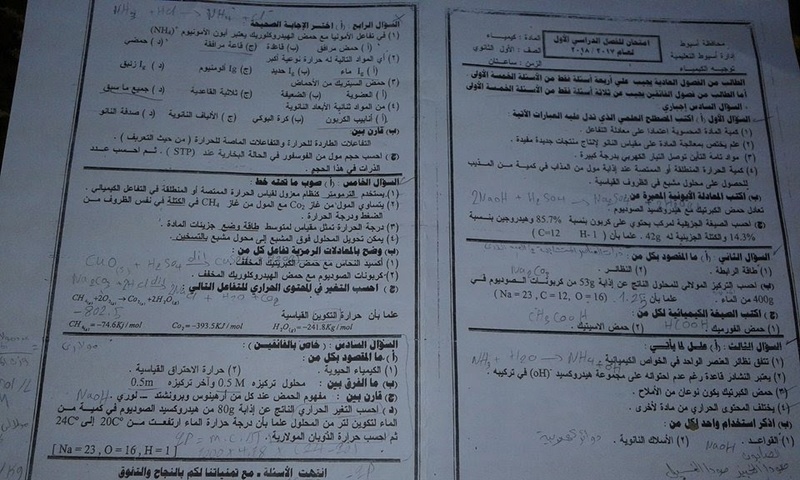 محافظة أسيوط
إدارة أسيوط التعليمية
توجيه الكيمياء
امتحان الفصل الدراسي الأول
لعام ٢٠١٧ / ٢٠١٨
المادة : كيمياء
الصف : الأول الثانوي
الزمن : ساعتان
الطالب من الفصول العادية يجيب على أربعة أسئلة فقط من الأسئلة الخمسة الأولى
أما الطالب من فصول الفائقين يجيب عن ثلاثة أسئلة فقط من الأسئلة الخمسة الأولى
السؤال السادس إجباري
السؤال الأول : أ) اكتب المصطلح العلمي الذي تدل عليه العبارات الآتية :
١) كمية المادة المحسوبة اعتمادا على معادلة التفاعل .
٢) علم يختص بمعالجة المادة على مقياس النانو لإنتاج منتجات جديدة مفيدة .
٣) مواد تامة التأين توصل التيار الكهربي بدرجة كبيرة .
٤) كمية الحرارة المنطلقة أو الممتصة عند إذابة مول من المذاب في كمية من المذيب
للحصول على محلول مشبع في الظروف القياسية .
(ب) اكتب المعادلة الأيونية المعبرة عن
2NaOH + H2SO4 → Na2SO4
تعادل حمض الكبرتيك مع هيدروكسيد الصوديوم .
(ج) احسب الصيغة الجزيئية لمركب يحتوي على كربون بنسبة 85.7% وهيدروجين بنسبة
14.3% والكتلة الجزيئية له 42g . علما بأن ( H- 1 C=12 )
السؤال الثاني : أ) ما المقصود بكل من :
١) طاقة الرابطة . ٢) النظائر .
Na2CO3
(ب) احسب التركيز المولالي للمحلول الناتج عن إذابة 53g من كربونات الصوديوم في
400g من الماء . علما بأن ( Na = 23 , C = 12, O = 16 )
1.25
(ج) اكتب الصيغة الكيميائية لكل من :
CH3COOH
١) حمض الفورميك ٢) حمض الأستيك .
HCOOH
السؤال الثالث : أ) علل لما يأتي :
١) تتفق نظائر العنصر الواحد في الخواص الكيميائية .
NH3 + H2O → NH4 + OH
٢) يعتبر النشادر قاعدة رغم عدم احتوائه على مجموعة هيدروكسيد (OH)- في تركيبه .
٣) حمض الكبرتيك يكون نوعان من الأملاح .
٤) يختلف المحتوى الحراري من مادة لأخرى .
(ب) اذكر استخدام واحد لكل من :
١) القواعد . ٢) الأسلاك النانوية .
NaOH
NH3 + HCl → NH4
السؤال الرابع : أ) اختر الإجابة الصحيحة
١) في تفاعل الأمونيا مع حمض الهيدروكلوريك يعتبر أيون الأمونيوم (NH4)+
(أ) حمض مرافق (ب) قاعدة (ج) قاعدة مرافقة (د) حمض
٢) أي المواد التالية له حرارة نوعية أكبر
(أ) 1g ماء (ب) 1g حديد (ج) 1g ألومنيوم (د) 1g زئبق
٣) حمض الستريك من الأحماض
(أ) العضوية (ب) الضعيفة (ج) ثلاثية القاعدية (د) جميع ما سبق
٤) من المواد ثنائية الأبعاد النانوية
(أ) أنابيب الكربون (ب) كرة البوكي (ج) الألياف النانوية (د) صدفة النانو
(ب) قارن بين
التفاعلات الطاردة للحرارة والتفاعلات الماصة للحرارة ( من حيث التعريف ) .
(ج) احسب حجم مول من الفوسفور في الحالة البخارية عند (STP) . ثم احسب عدد
الذرات في هذا الحجم .
السؤال الخامس : أ) صوب ما تحته خط
١) يستخدم الترمومتر كنظام معزول لقياس الحرارة الممتصة أو المنطلقة في التفاعل الكيميائي .
٢) يتساوي المول من غاز Co2 مع المول من غاز CH4 في الكتلة في نفس الظروف من
الضغط ودرجة الحرارة .
٣) درجة الحرارة تمثل مقياس لمتوسط طاقة وضع جزيئات المادة .
٤) يمكن تحويل المحلول فوق المشبع إلى محلول مشبع بالتسخين .
(ب) وضح بالمعادلات الرمزية تفاعل كل من :
١) أكسيد النحاس مع حمض الكبرتيك المخفف .
CuO(s) + H2SO4 dil
٢) كربونات الصوديوم مع حمض الهيدروكلوريك المخفف .
(ج) احسب التغير في المحتوى الحراري للتفاعل التالي :
CH4(g)+2O2(g) → Co2(g)+2H2O(g)
-802.5
علما بأن حرارة التكوين القياسية
CH4(g) = -74.6Kj / mol Co2 = -393.5KJ / mol H2O(g) = -241.8Kg / mol
السؤال السادس : ( خاص بالفائقين )
(أ) ما المقصود بكل من :
١) الكيمياء الحيوية . ٢) حرارة الاحتراق القياسية .
(ب) ما الفرق بين : محلول تركيزه 0.5 M وآخر تركيزه 0.5m
(ج) قارن بين : مفهوم الحمض عند كل من أرهينيوس وبرونشتد – لوري
NaOH
(د) احسب التغير الحراري الناتج عن إذابة 80g من هيدروكسيد الصوديوم في كمية من
الماء لتكوين لتر من المحلول علما بأن درجة حرارة الماء ارتفعت من 20C° إلى 24C°
ثم احسب حرارة الذوبان المولارية .
[ Na = 23 , O = 16 , H = 1 ]
انتهت الأسئلة - مع تمنياتنا لكم بالنجاح والتفوق